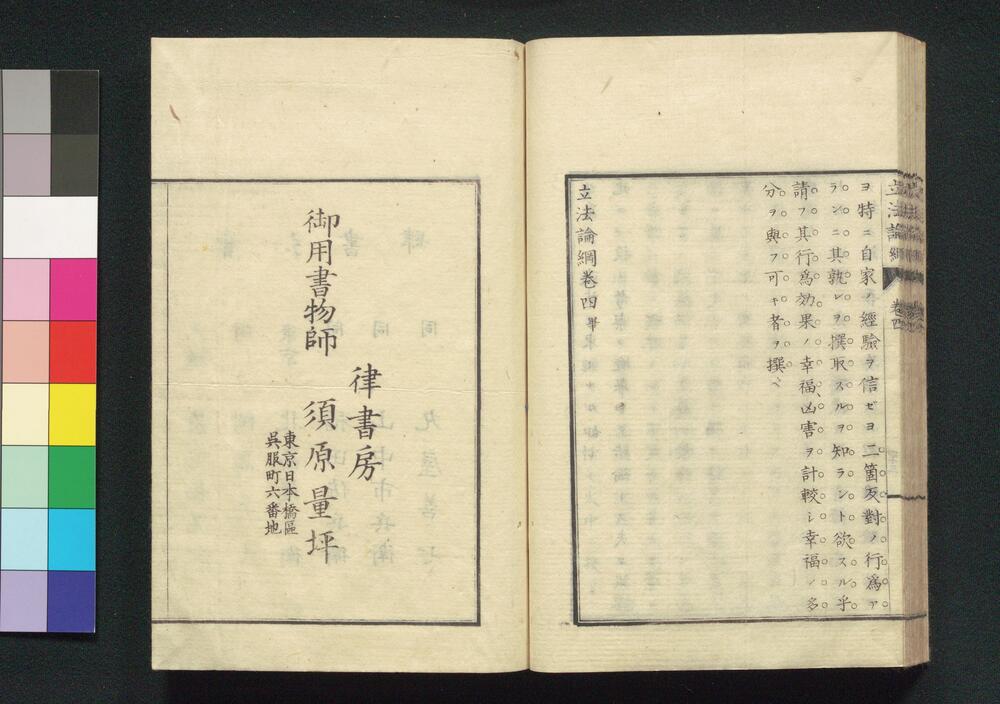 立法論綱
卷四
ヲ特ニ自家ノ經驗ヲ信ゼヨ二箇反對ノ行爲ア
ランニ其孰レヲ撰取スルヲ知ラント欲スル乎
請フ其行爲効果ノ幸福、凶害ヲ計較シ幸福ノ多
分ヲ與フ可キ者ヲ撰ベ
立法論綱卷四畢
律書房
御用書物師 須原量坪
東京日本橋區
呉服町六番地